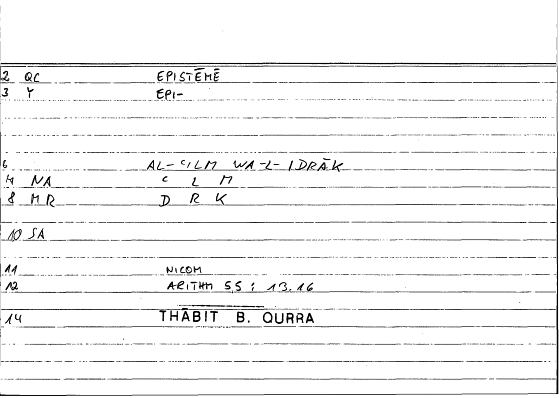 2 QC EPISTĒMĒ
3 Y EPI-
6 AL-ʿILM WA-L-IDRĀK
4 NA ʿ L M
8 MR D R K
10 SA
11 NICOM
12 ARITHM 5,5 ; 13.16
14 THĀBIT B. QURRA